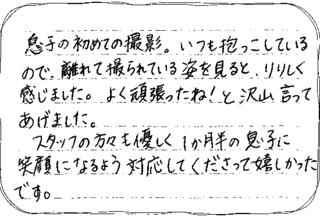 息子の初めての撮影。いつも抱っこしている
ので、離れて撮られている姿を見ると、りりしく
感じました。よく頑張ったね！と沢山言って
あげました。
スタッフの方々も優しく1か月半の息子に
笑顔になるよう対応してくださって嬉しかった
です。